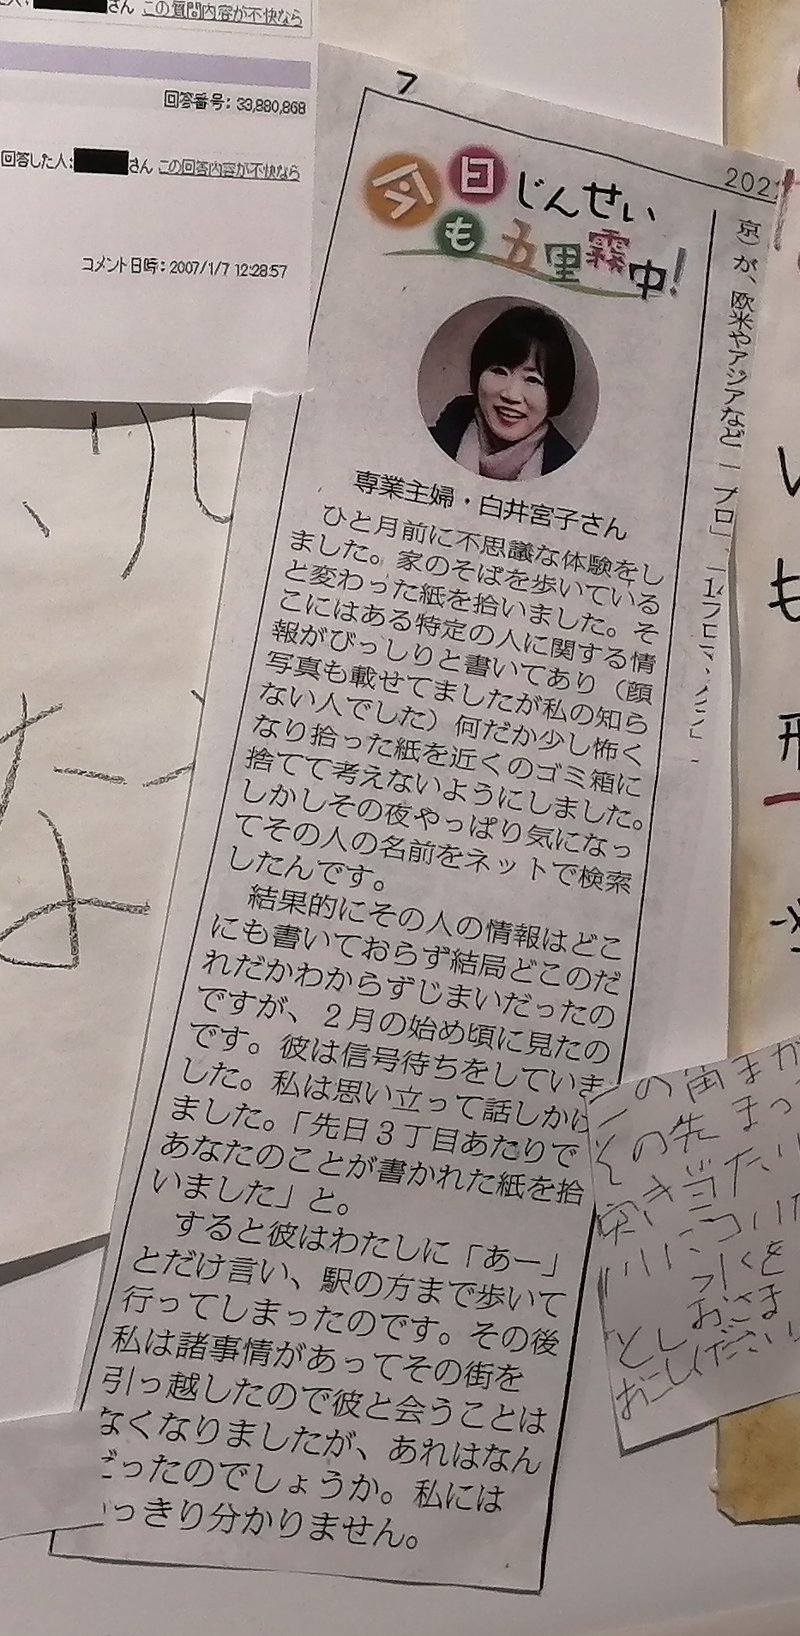 さん この質問内容が不快なら
回答番号：33,880,868
回答した人：さん この回答内容が不快なら
コメント日時：2007/1/7 12:28:57
7
202
今日じんせい
も五里霧中！
専業主婦・白井宮子さん
ひと月前に不思議な体験をし
ました。家のそばを歩いている
と変わった紙を拾いました。そ
こにはある特定の人に関する情
報がびっしりと書いてあり（顔
写真も載せてましたが私の知ら
ない人でした）何だか少し怖く
なり拾った紙を近くのゴミ箱に
捨てて考えないようにしました。
しかしその夜やっぱり気になっ
てその人の名前をネットで検索
したんです。
結果的にその人の情報はどこ
にも書いておらず結局どこのだ
れだかわからずじまいだったの
ですが、２月の始め頃に見たの
です。彼は信号待ちをしていま
した。私は思い立って話しかけ
ました。「先日３丁目あたりで
あなたのことが書かれた紙を拾
いました」と。
すると彼はわたしに「あー」
とだけ言い、駅の方まで歩いて
行ってしまったのです。その後
私は諸事情があってその街を
引っ越したので彼と会うことは
なくなりましたが、あれはなん
だったのでしょうか。私には
はっきり分かりません。
京）が、欧米やアジアなど
の角まが
その先 まっ
突き当たり
についた
つくを
おさま
とし
おこしください